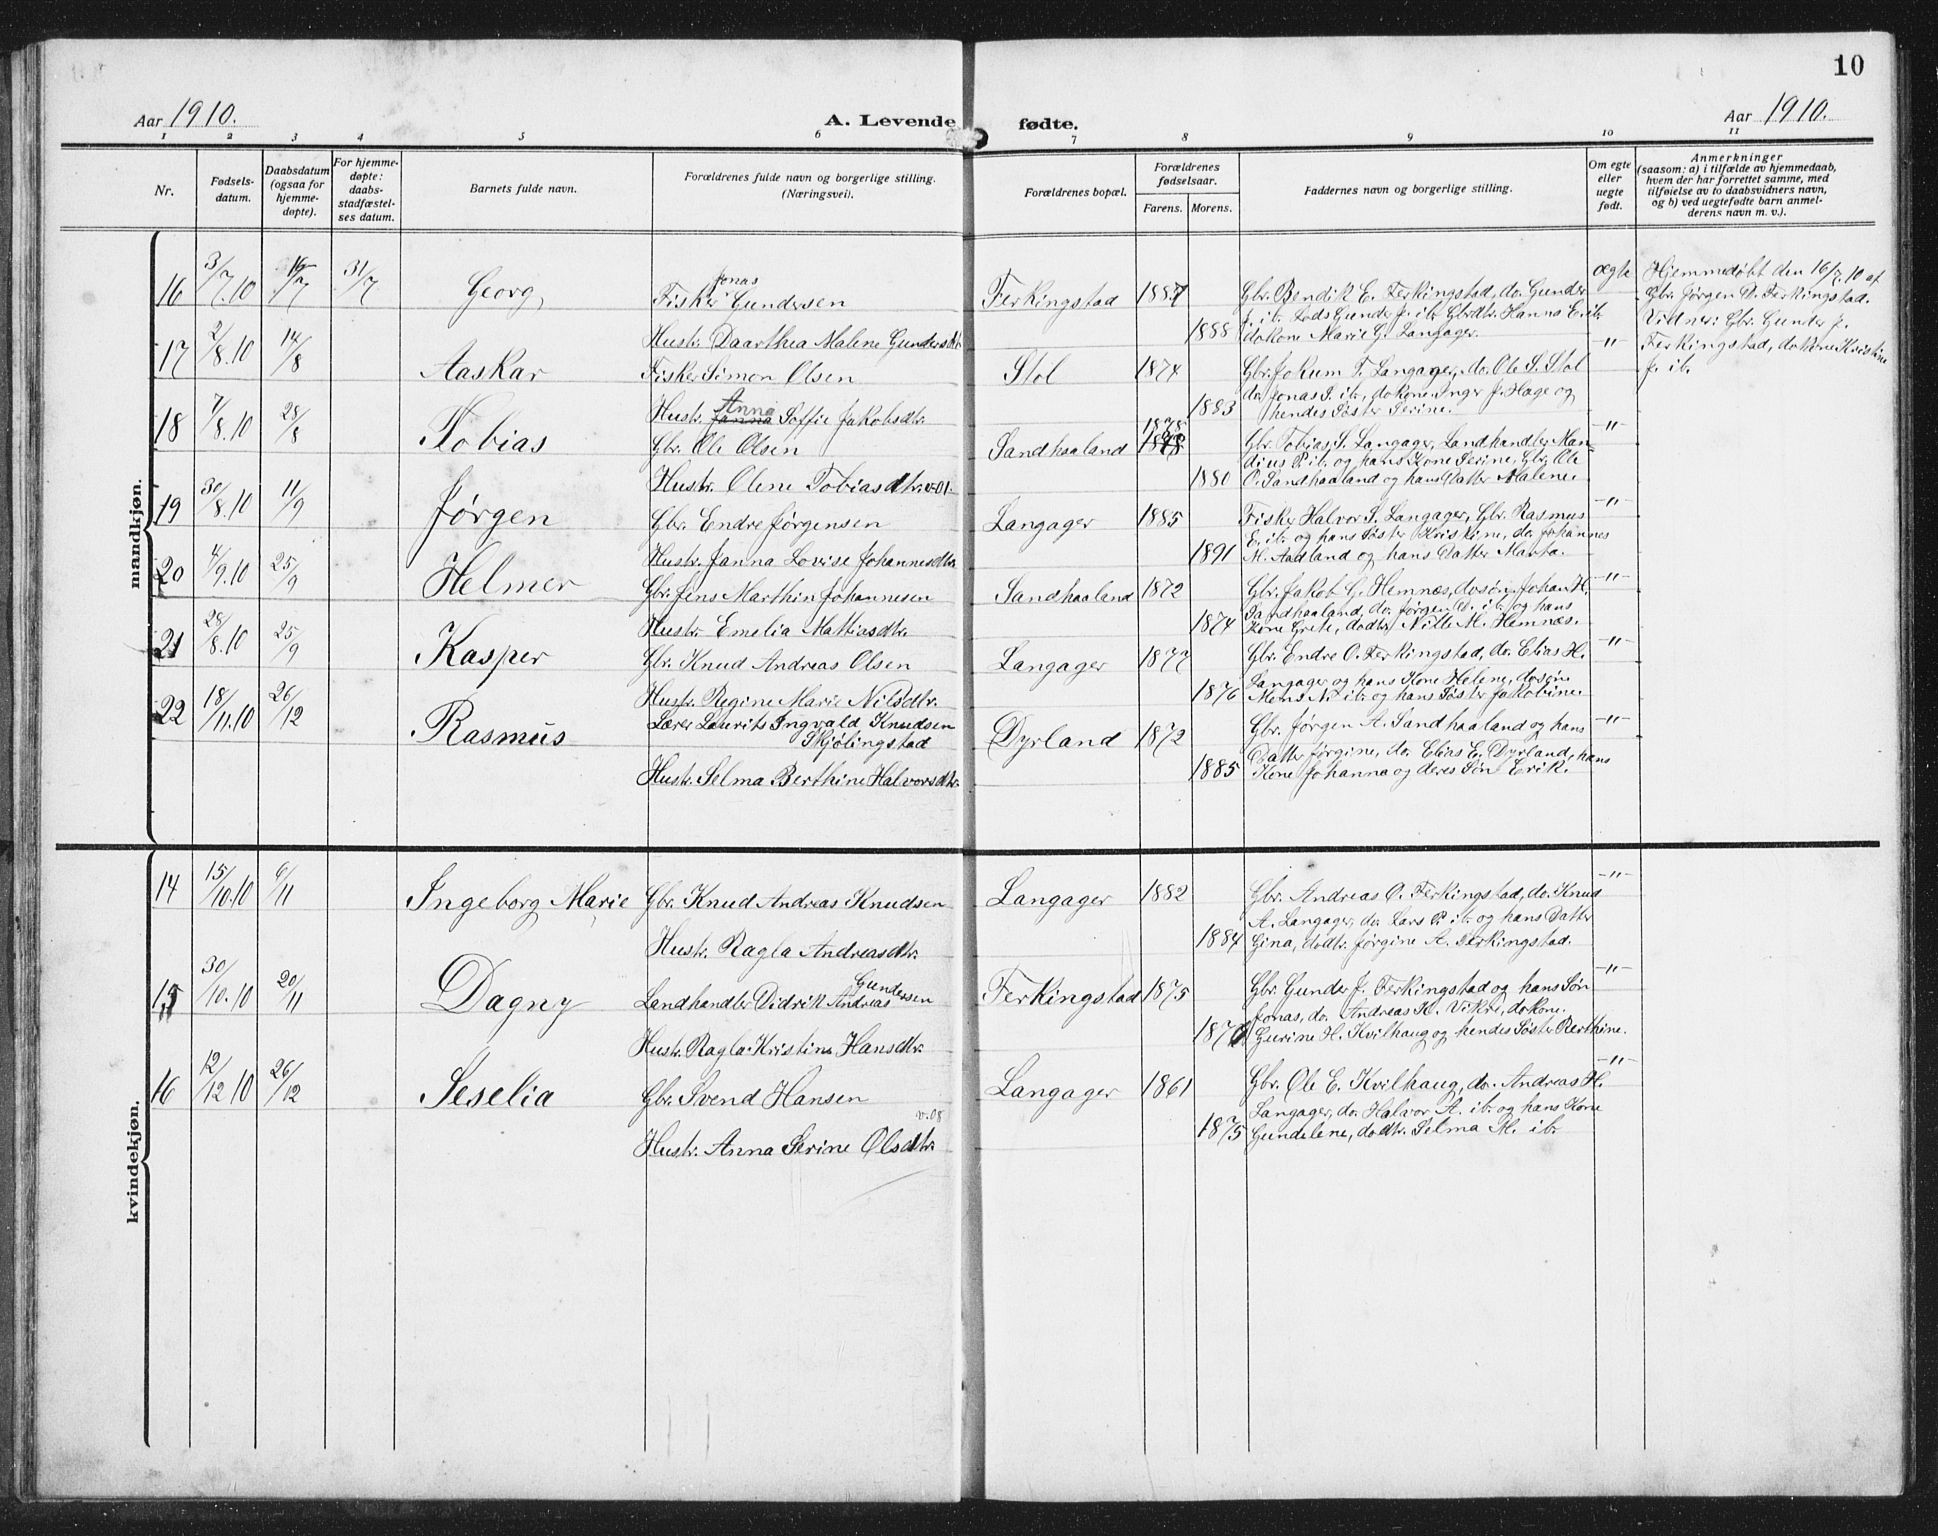 10
Aar 1910.
A. Levende fødte.
Aar 1910.
1 2 3 4 5 6 7 8 9 10 11
Nr.
Fødsels-
datum.
Daabsdatum
(ogsaa for
hjemme-
døpte).
For hjemme-
døpte:
daabs-
stadfæstel-
ses datum.
Barnets fulde navn.
Forældrenes fulde navn og borgerlige stilling.
(Næringsvei).
Forældrenes bopæl.
Forældrenes
fødselsaar.
Farens. Morens.
Faddernes navn og borgerlige stilling.
Om egte
eller
uegte
født.
Anmerkninger
(saasom: a) i tilfælde av hjemmedaab,
hvem der har forrettet samme, med
tilføielse av to daabsvidners navn,
og b) ved uegtefødte barn anmel-
derens navn m. v.).
mandkjøn.
16 3/7.10 16/7 31/7 Georg
Jonas
Fisker Gundersen
Hustr. Daarthea Malene Gundersdtr.
Ferkingstad 1887
1888
Gbr. Bendik E. Ferkingstad, do. Gunder
J. ib. Lods Gunder J. ib. Gbrdtr. Hanna E. ib.
dokone Marie G. Langager.
ægte
Hjemmedøbt den 16/7.10 af
Gbr. Jørgen D. Ferkingstad.
Vidner: Gbr. Gunder J.
Ferkingstad, dokone Kristine
J. ib.
17 2/8.10 14/8 Aaskar
Fisker Simon Olsen
Anna
Hustr. Janna Soffie Jakobsdtr.
Stol 1874
1883
Gbr. Jokum T. Langager, do. Ole S. Stol
do. Jonas S. ib., dokone Inger J. Hage og
hendes Søster Serine.
-"-
18 7/8.10 28/8 Tobias
Gbr. Ole Olsen
Hustr. Olene Tobiasdtr. v. 01.
Sandhaaland 1878
1880
Gbr. Tobias S. Langager, Landhandler Man-
dius P. ib. og hans Kone Serine, Gbr. Ole
O. Sandhaaland og hans Datter Malene.
-"-
19 30/8.10 11/9 Jørgen
Gbr. Endre Jørgensen
Hustr. Janna Lovise Johannesdtr.
Langager 1885
1891
Fisker Halvor S. Langager, Gbr. Rasmus
E. ib. og hans Søster Kristine, do. Johannes
M. Aadland og hans Datter Marta.
-"-
20 4/9.10 25/9 Helmer
Gbr. Jens Marthin Johannesen
Hustr. Emelia Mattiasdtr.
Sandhaaland 1872
1874
Gbr. Jakob G. Hemnæs, dosøn Johan H.
Sandhaaland, do. Jørgen D. ib. og hans
Kone Grete, dodtr. Nille M. Hemnæs.
-"-
21 28/8.10 25/9 Kasper
Gbr. Knud Andreas Olsen
Hustr. Regine Marie Nilsdtr.
Langager 1877
1876
Gbr. Endre O. Ferkingstad, do. Elias H.
Langager og hans Kone Helene, dosøn
Mons N. ib. og hans Søster Jakobine.
-"-
22 18/11.10 26/12 Rasmus
Lærer Laurits Ingvald Knudsen
Skjølingstad
Hustr. Selma Berthine Halvorsdtr.
Dyrland 1872
1885
Gbr. Jørgen A. Sandhaaland og hans
Datter Jørgine, do. Elias E. Dyrland, hans
Kone Johanna og deres Søn Erik.
-"-
kvindekjøn.
14 15/10.10 6/11 Ingeborg Marie
Gbr. Knud Andreas Knudsen
Hustr. Ragla Andreasdtr.
Langager 1882
1884
Gbr. Andreas O. Ferkingstad, do. Knud
A. Langager, do. Lars P. ib. og hans Datter
Gina, dodtr. Jørgine A. Ferkingstad.
-"-
15 30/10.10 20/11 Dagny
Gundersen
Landhandler Didrik Andreas
Hustr. Ragla Kristine Hansdtr.
Ferkingstad 1875
Gbr. Gunder J. Ferkingstad og hans Søn
Jonas, do. Andreas K. Vikre, dokone
Gurine H. Kvilhaug og hendes Søster Berthine.
-"-
16 12/12 10 26/12 Seselia
Gbr. Svend Hansen
v. 08
Hustr. Anna Serine Olsdtr.
Langager 1861
1875
Gbr. Ole E. Kvilhaug, do. Andreas H.
Langager, do. Halvor A. ib. og hans Kone
Gundelene, dodtr. Selma M. ib.
-"-